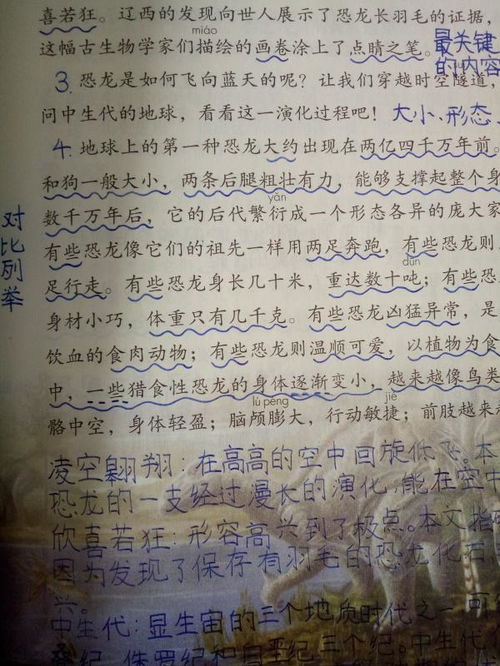 喜若狂。辽西的发现向世人展示了恐龙长羽毛的证据，
miáo
这幅古生物学家们描绘的画卷涂上了点睛之笔。
最关键
的内容
3. 恐龙是如何飞向蓝天的呢？让我们穿越时空隧道，
问中生代的地球，看看这一演化过程吧！
大小、形态、
4. 地球上的第一种恐龙大约出现在两亿四千万年前。
和狗一般大小，两条后腿粗壮有力，能够支撑起整个身
yǎn
数千万年后，它的后代繁衍成一个形态各异的庞大家
对比列举
有些恐龙像它们的祖先一样用两足奔跑，有些恐龙则
dūn
足行走。有些恐龙身长几十米，重达数十吨；有些恐
身材小巧，体重只有几千克。有些恐龙凶猛异常，是
饮血的食肉动物；有些恐龙则温顺可爱，以植物为食
中，一些猎食性恐龙的身体逐渐变小，越来越像鸟类
lú péng
jié
骼中空，身体轻盈；脑颅膨大，行动敏捷；前肢越来
凌空翱翔：在高高的空中回旋你飞。本
恐龙的一支经过漫长的演化，能在空中
欣喜若狂：形容高兴到了极点。本文指
因为发现了保存有羽毛的恐龙化石
兴。
中生代：显生宙的三个地质时代之一 可
纪 侏罗纪和白垩纪三个纪。中生代